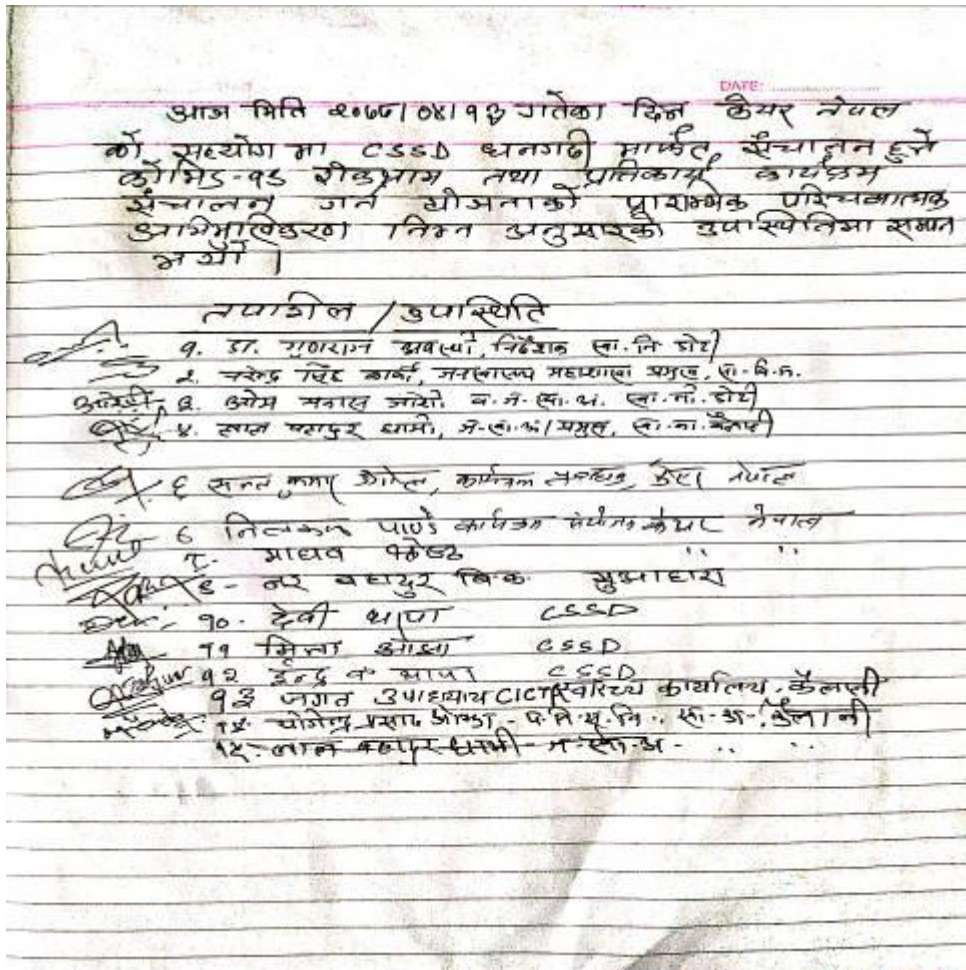 DATE: ....................
आज मिति २०७७/०४/१३ गतेका दिन केयर नेपाल
को सहयोग मा CSSD धनगढी मार्फत संचालन हुने
कोभिड-१९ रोकथाम तथा प्रतिकार्य कार्यक्रम
संचालन गर्न योजनाको प्रारम्भिक परिचयात्मक
अभिमुखिकरण निम्न अनुसारको उपास्थितिमा सम्पन्न
भयो ।
तपाशील / उपास्थिति
१. डा. गुणराज अवस्थी, निर्देशक स्वा. नि डोटी
२. नरेन्द्र सिंह कार्की, जनस्वास्थ्य महाशाखा प्रमुख, स्वा. नि.
३. ओम प्रकाश जोशी व. ज. स्वा. अ. डोटी
४. लाल बहादुर धामी, ज. स्वा. अ / प्रमुख, स्वा. का. कैलाली
६ कुमार कार्यक्रम केयर नेपाल
७ निलकण्ठ पाण्डे कार्यक्रम संयोजक केयर नेपाल
८. माधव श्रेष्ठ " "
९ - नर बहादुर बि.क. सुआहारा
१०. देवी थापा CSSD
११ मिना ओझा CSSD
१२ इन्द्र व थापा CSSD
१३ जगत उपाध्याय CICT स्वास्थ्य कार्यालय, कैलाली
१४. योगेन्द्र प्रसाद ओझा - कैलाली
१५. लाल बहादुर धामी - ज. स्वा. अ - .. ..